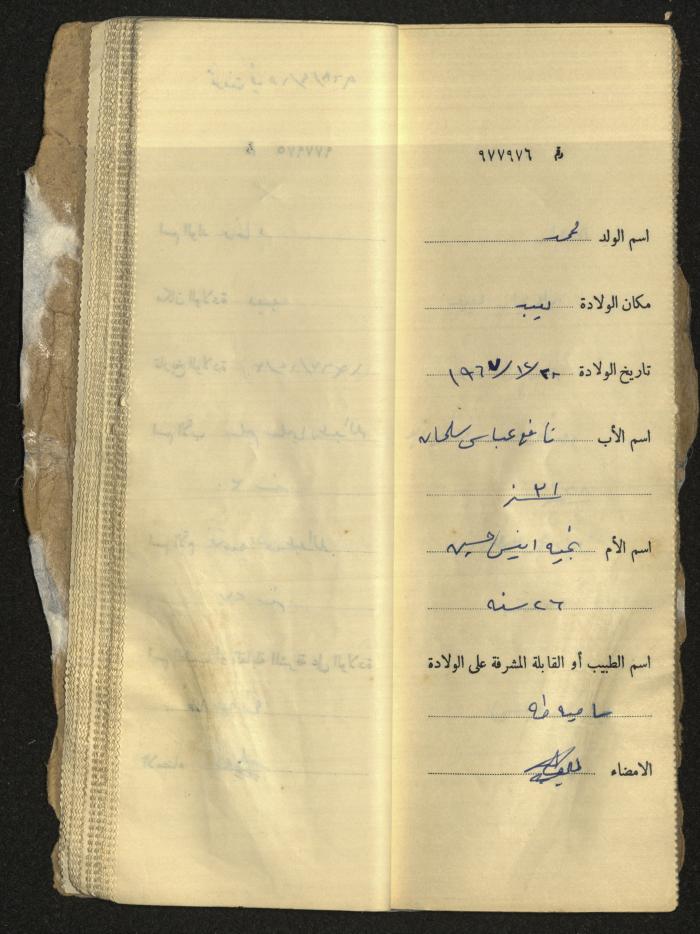 رقم ٩٧٧٩٧٦
اسم الولد محمد
مكان الولادة
تاريخ الولادة ١٩٦٧/١٢/٣٠
اسم الأب نافع عباس سلمان
٣١ سنه
اسم الأم نجيه انيس حسين
٢٦ سنه
اسم الطبيب أو القابلة المشرفة على الولادة
ساميه طه
الامضاء